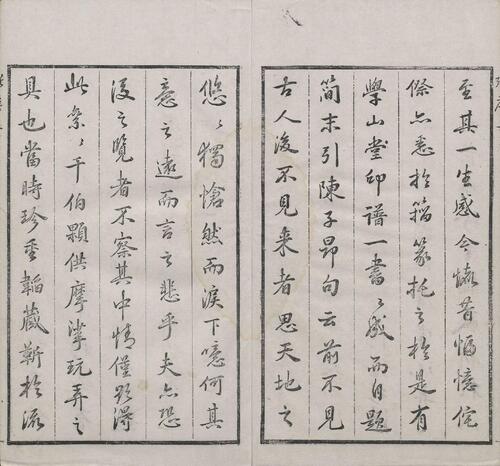 至其一生感今懷昔愊憶侘
傺亦悉於籀篆托之於是有
學山堂印譜一書〻成而自題
簡末引陳子昂句云前不見
古人後不見来者思天地之
悠〻獨愴然而淚下噫何其
意之遠而言之悲乎夫亦恐
後之覽者不察其中情僅得
此纍〻千伯顆供摩挲玩弄之
具也當時珍重韜藏靳於流